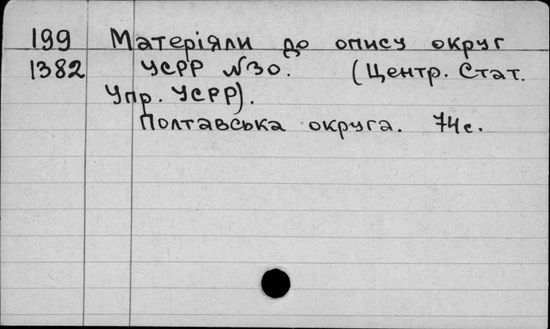 199 Матеріяли до опису округ
1382 УСРР №30. (Центр. Стат.
Упр. УСРР).
Полтавська округа. 74с.